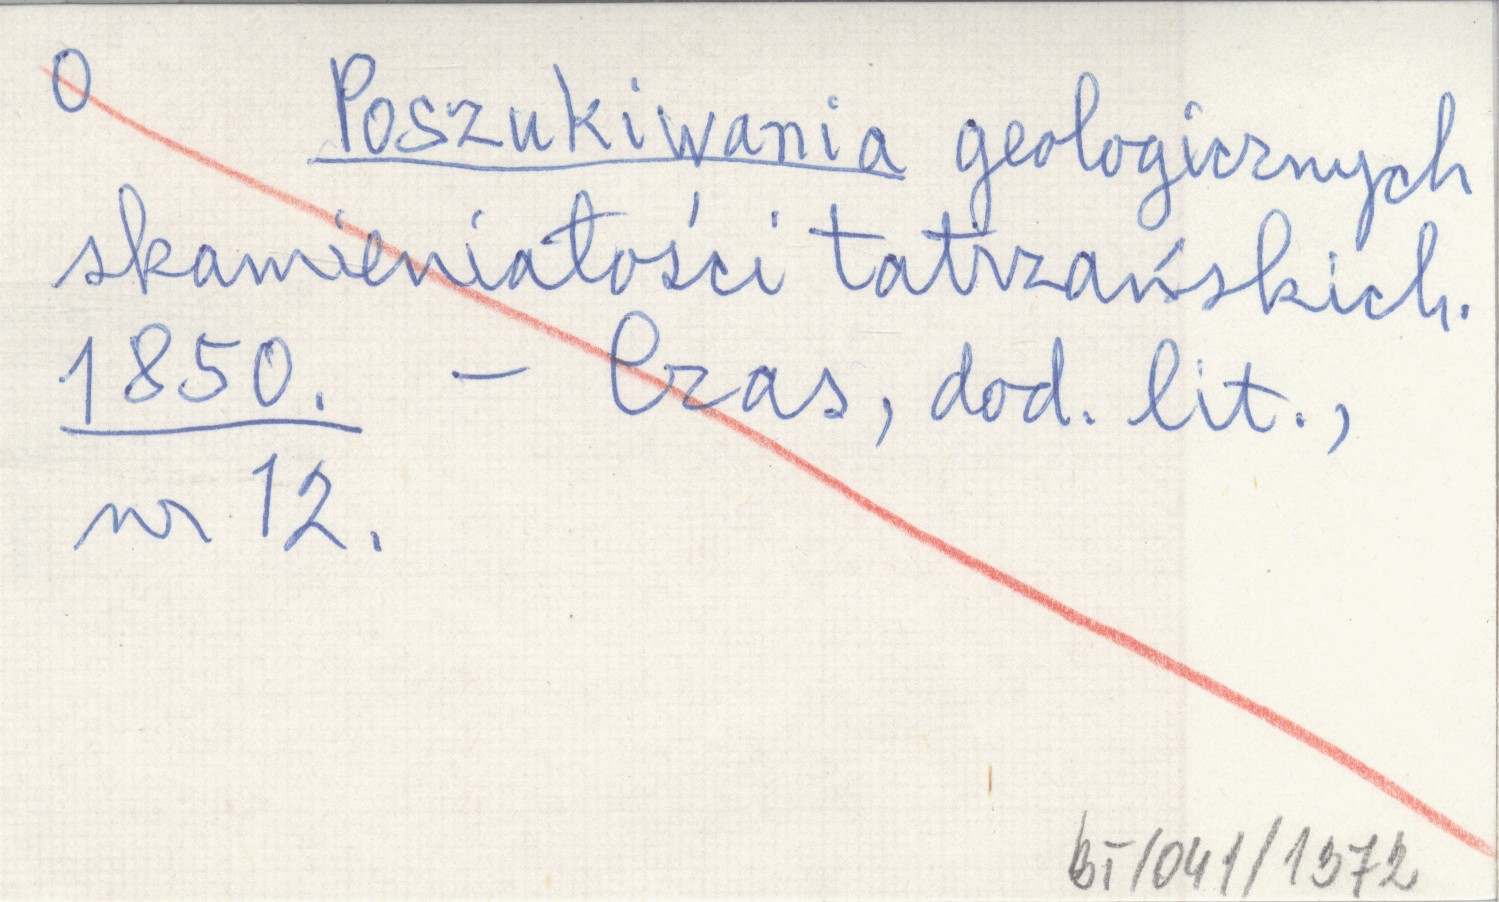 0 Poszukiwania geologicznych
skamieniałości tatrzańskich.
1850. – Czas, dod. lit.,
nr 12.
BT/041/1372